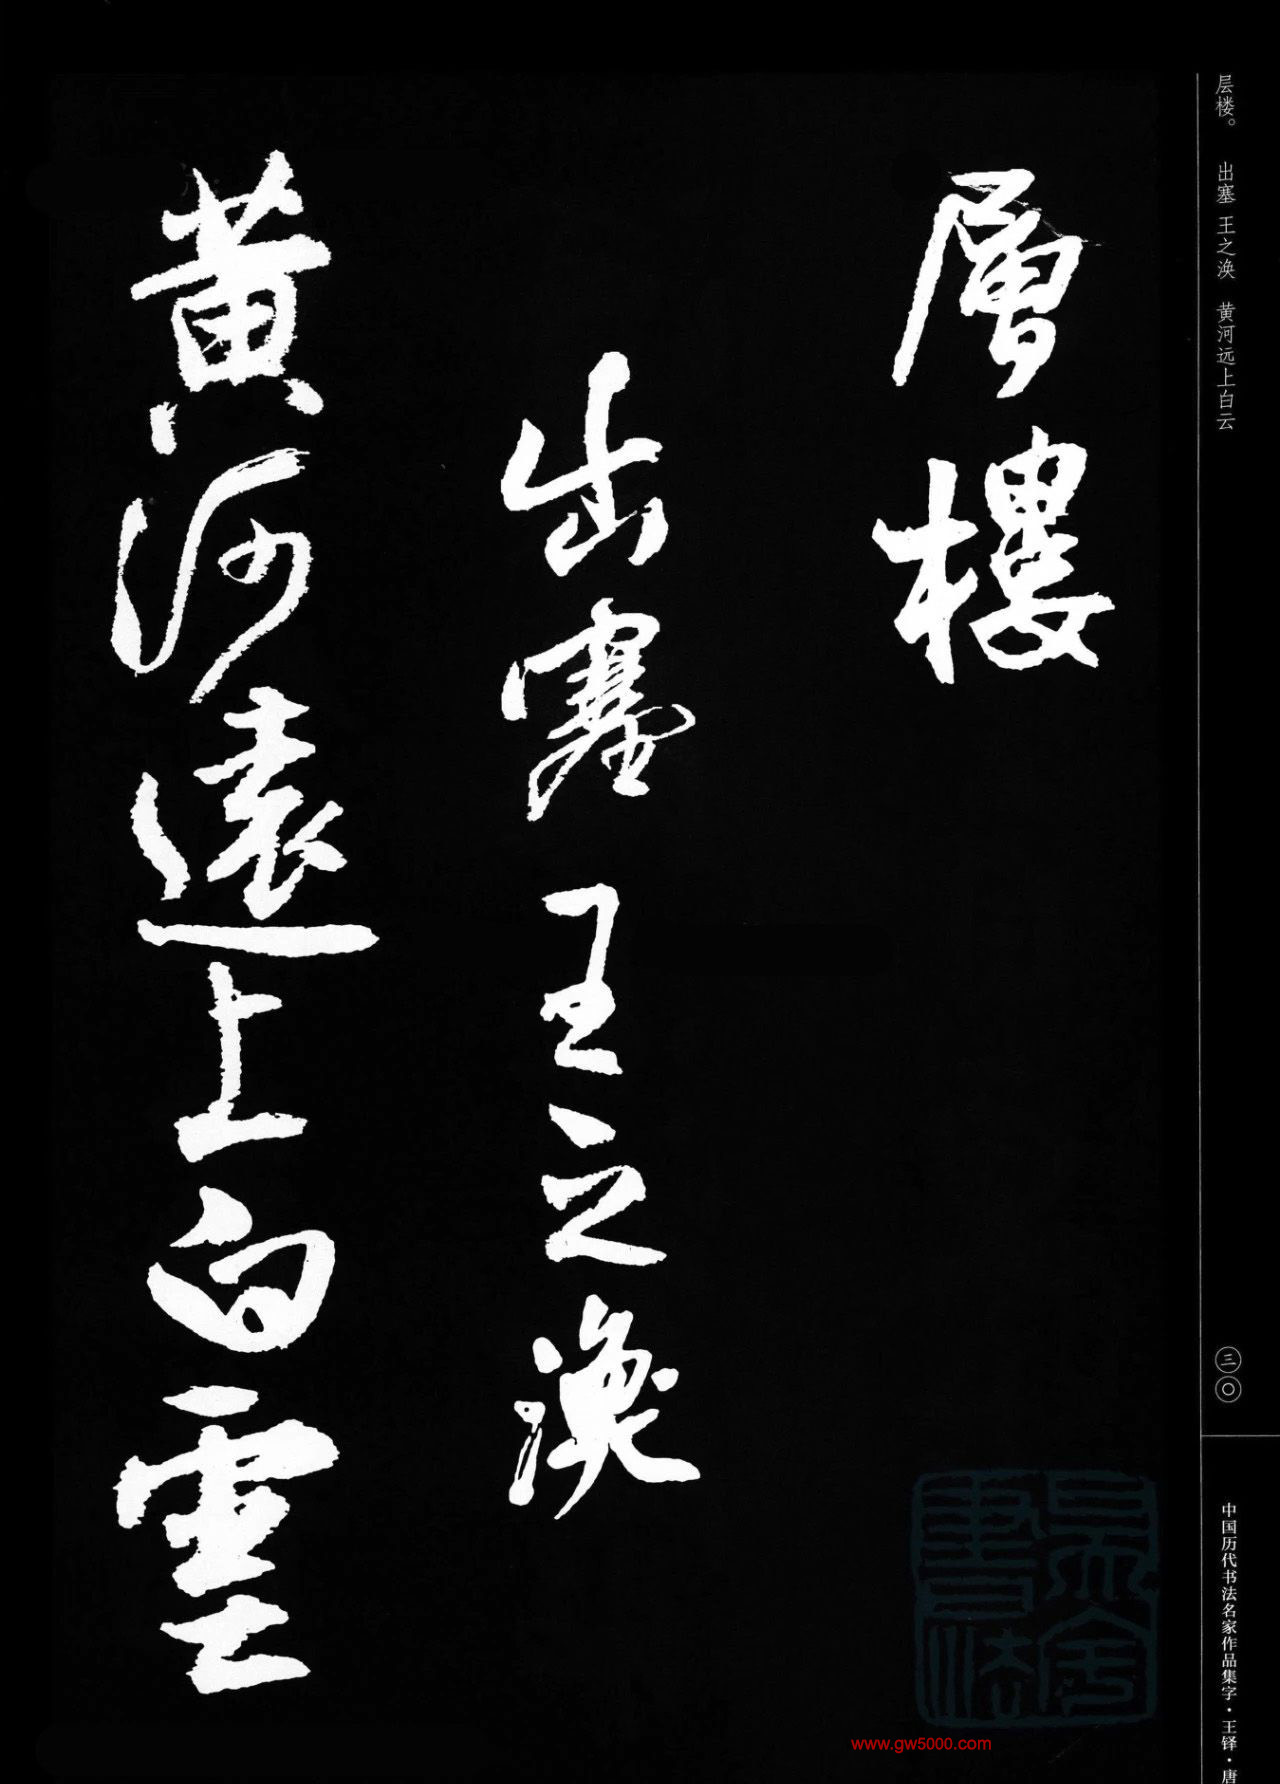 层楼。 出塞 王之涣 黄河远上白云
層樓
出塞 王之渙
黄河遠上白雲
三〇
中国历代书法名家作品集字·王铎·唐
www.gw5000.com